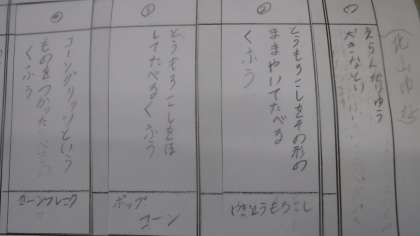 えらんだりゆう
とうもろこしをその形の
ままやいてたべる
くふう
やきとうもろこし
とうもろこしをほ
してたべるくふう
ポップ
コーン
コーングリッツという
ものをつかった
くふう
コーンフレーク